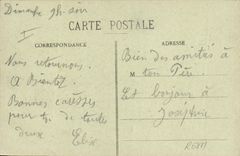 Dimanche 9h. soir
I
CARTE POSTALE
CORRESPONDANCE
ADRESSE
Nous retournons.
A Bientôt.
Bonnes caresses
pour de toutes
deux
Bien des amitiés à
M ton Père.
Et bonjour à
Joséphine